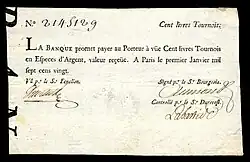 N.º 2145129 Cent livres Tournois.
LA BANQUE promet payer au Porteur à vüe Cent livres Tournois
en Especes d'Argent, valeur reçeüe. A Paris le premier Janvier mil
sept cens vingt.
Vû p.r le S.r Fenellon. Signé p.r le S.r Bourgeois.
Controllé p.r le S.r Durevest.